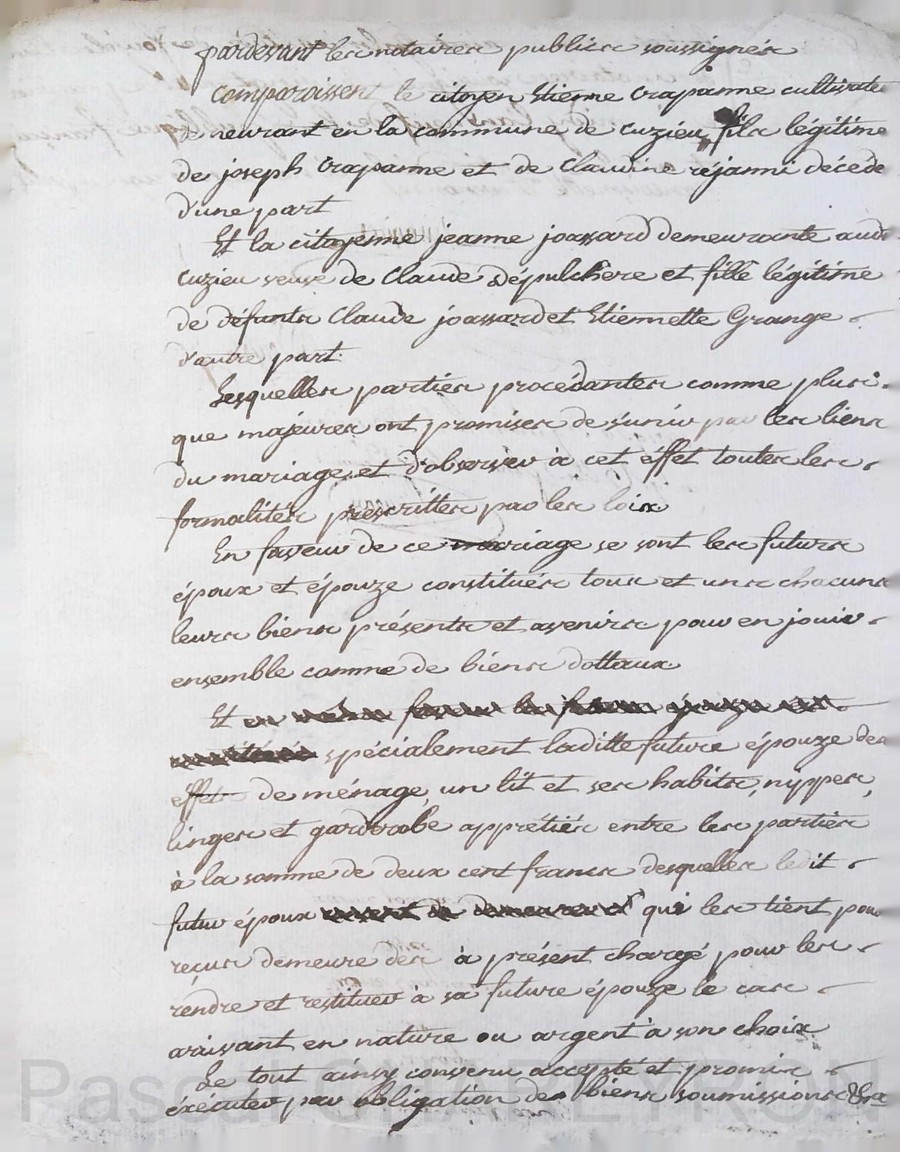 pardevant les notaires publics soussignés
comparaissent le citoyen Etienne Crapanne cultivate
de neurant en la commune de cuzieu, fils légitime
de joseph Crapanne et de Claudine réjanni décédé
d'une part
Et la citoyenne jeanne joassard demeurante aud
cuzieu veuve de Claude dépulchere et fille légitime
de défunts Claude joassard et Etiennette Grange
d'autre part.
Lesquelles parties procédantes comme plus
que majeures ont promises de s'unir par les liens
du mariage, et d'observer à cet éffet toutes les
formalités prescrittes par les loix
En faveur de ce mariage se sont les futurs
époux et épouze constitués tous et uns chacuns
leurs biens présents et avenirs pour en jouir
ensemble comme de biens dottaux
Et en
spécialement laditte future épouze des
effets de ménage, un lit et ses habits, nyppes,
linges et garderobe apprétiés entre les parties
à la somme de deux cent francs desquelles ledit
futur époux qui les tient pour
reçus demeure dès à présent chargé pour les
rendre et restituer à sa future épouze le cas
arivant en nature ou argent à son choix
Le tout ainsy convenu accepté et promis
éxécuter par obligation des biens soumissions &ra
Pascal CHAREYRON